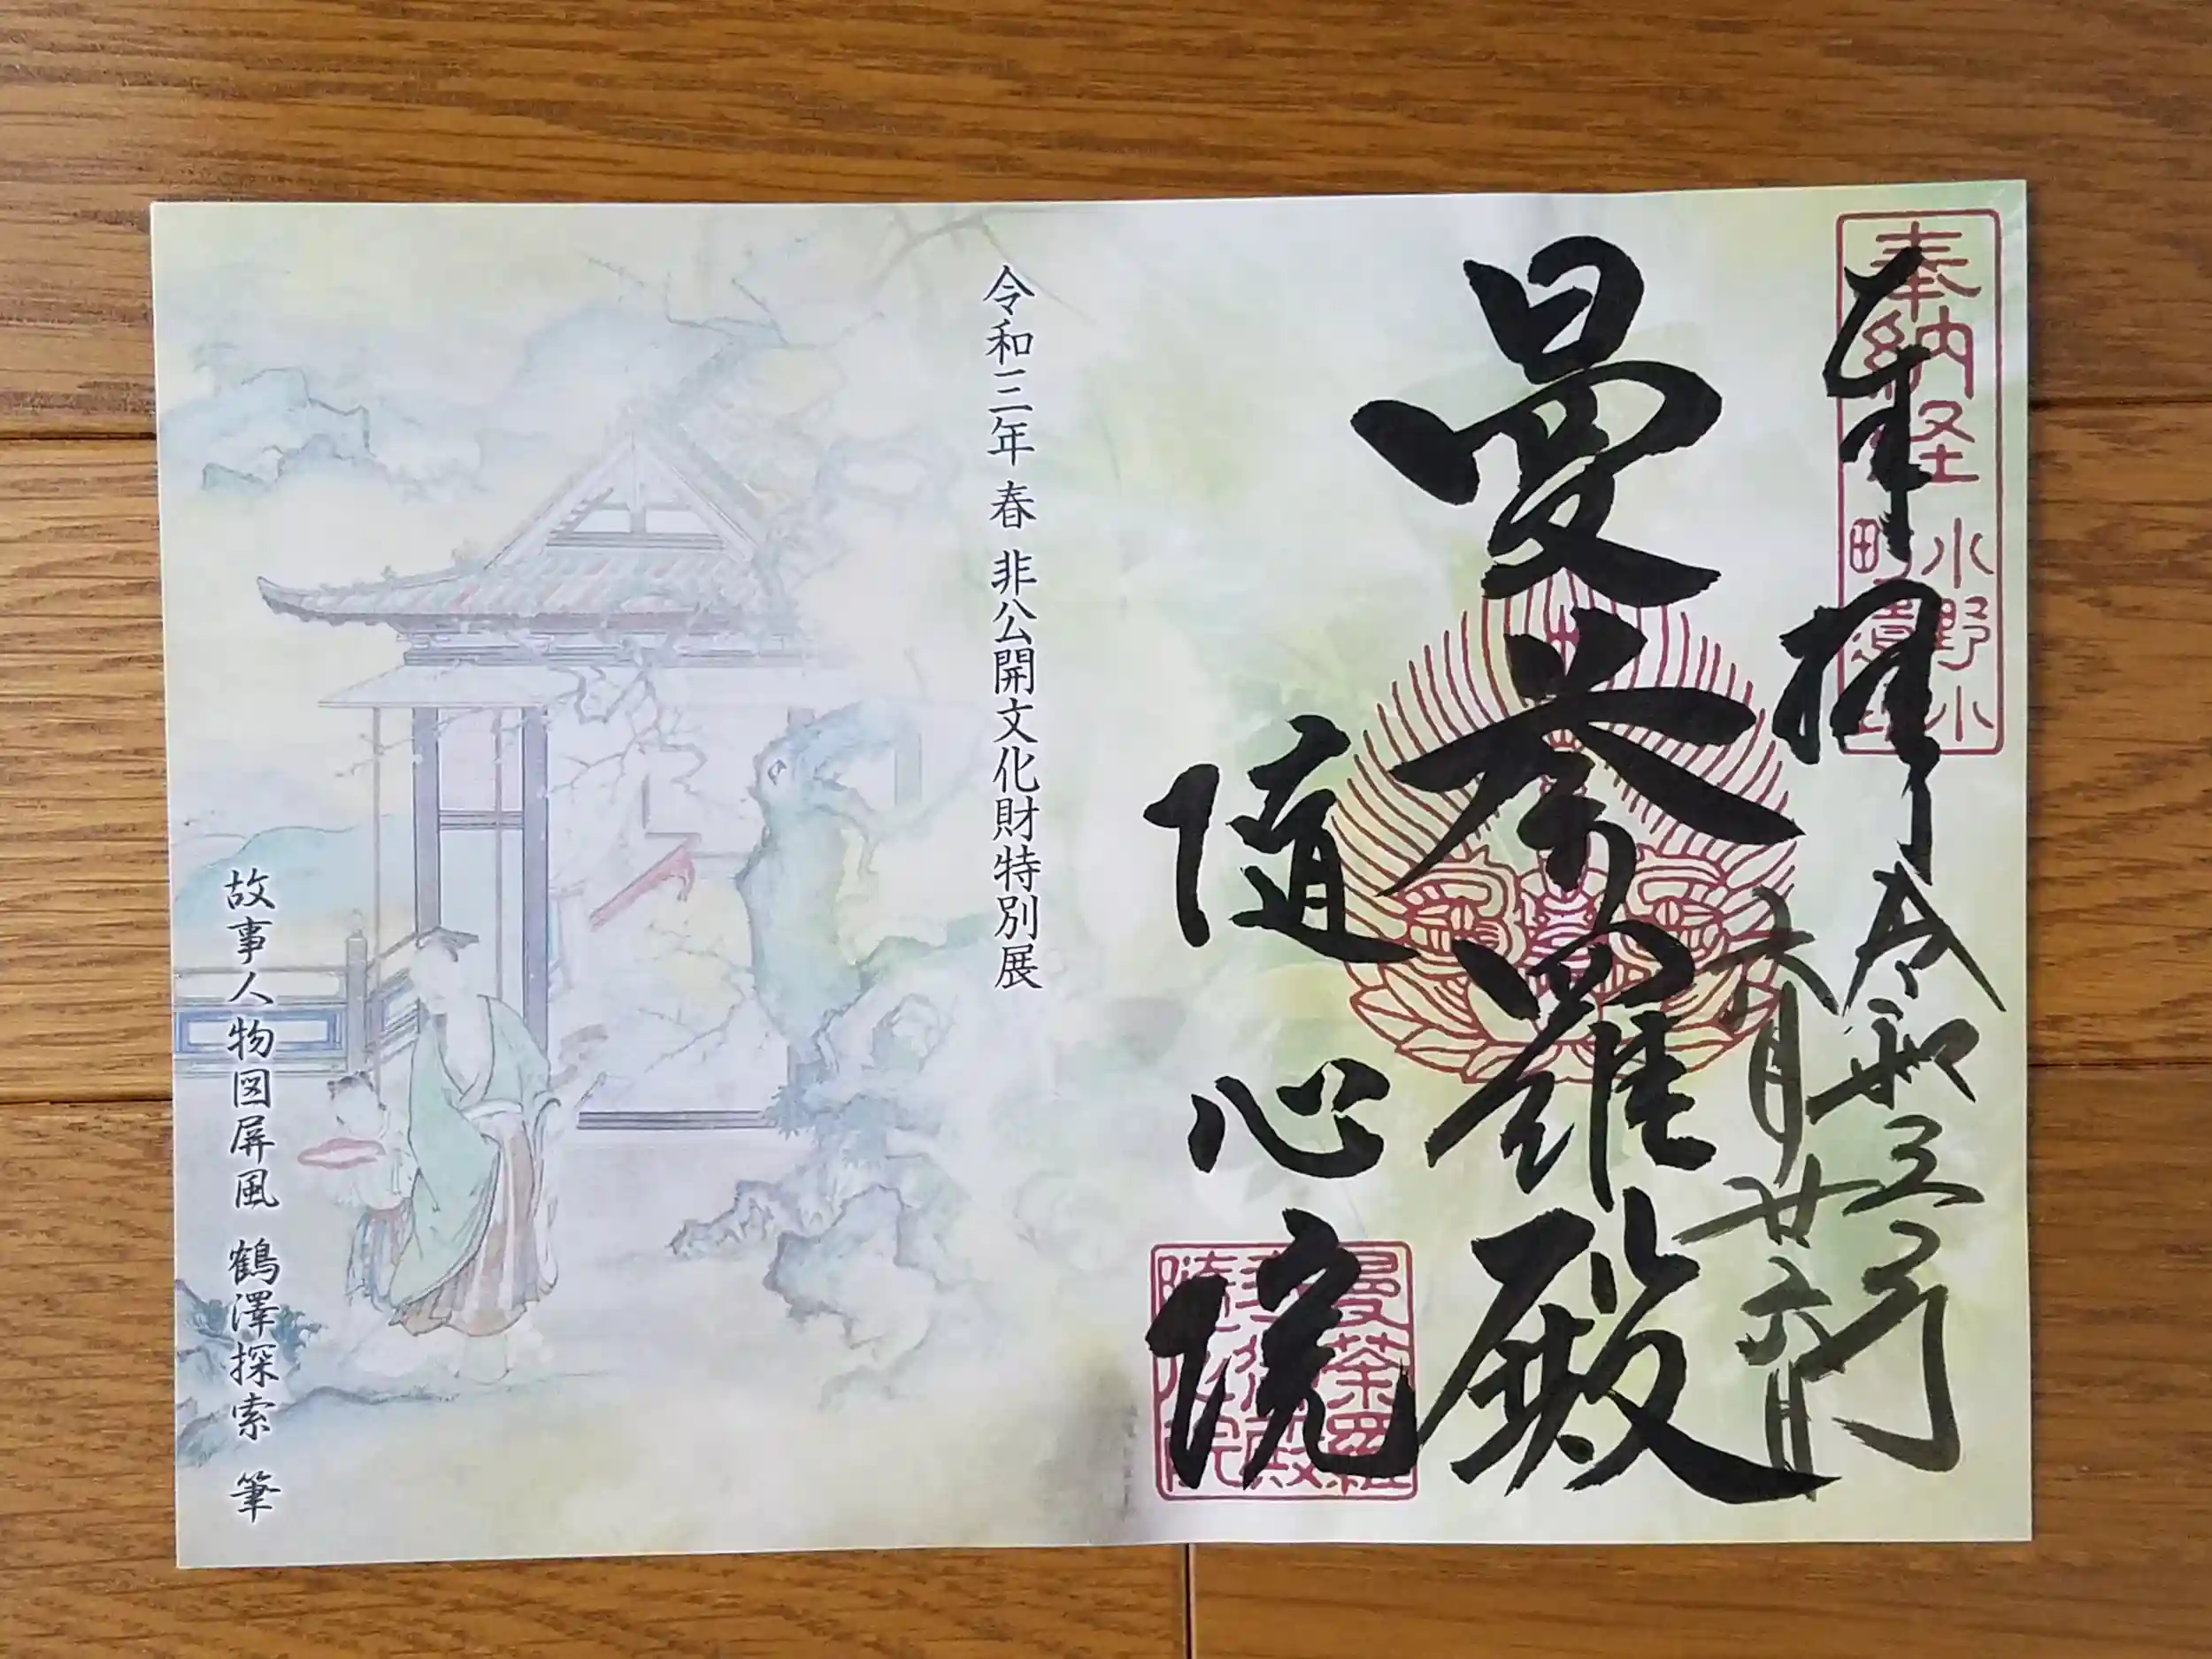 奉拝
奉納経
小野小
町遺跡
令和三年
六月廿六日
曼荼羅殿
随心院
曼荼羅
殿
随心院
令和三年 春 非公開文化財特別展
故事人物図屏風 鶴澤探索 筆